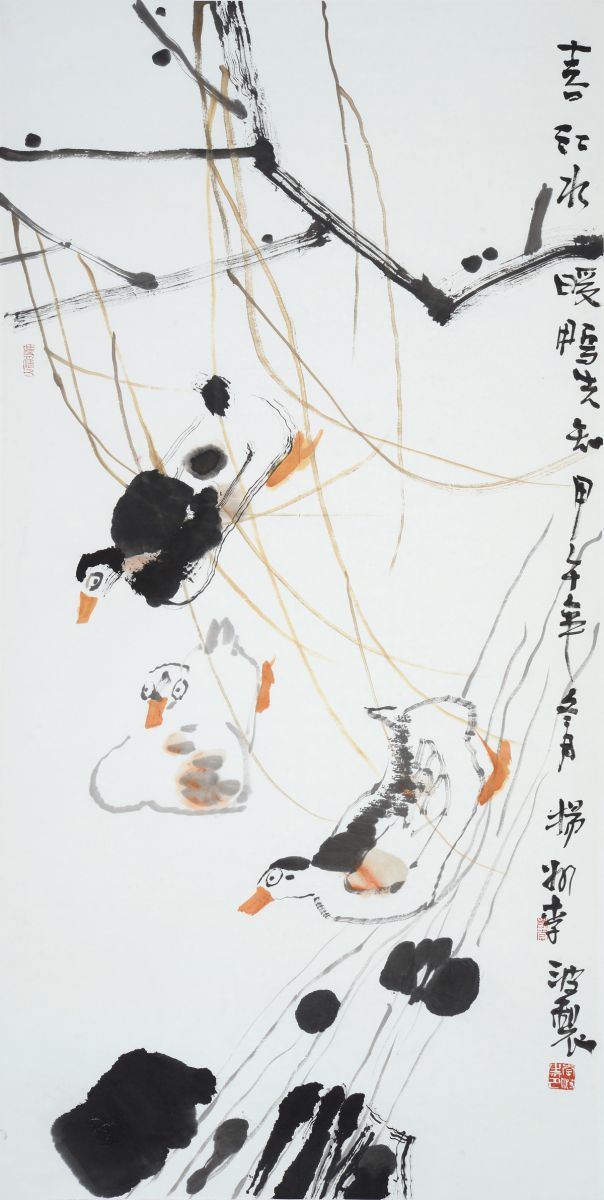 春江水暖鴨先知甲午年冬月揚州李波製